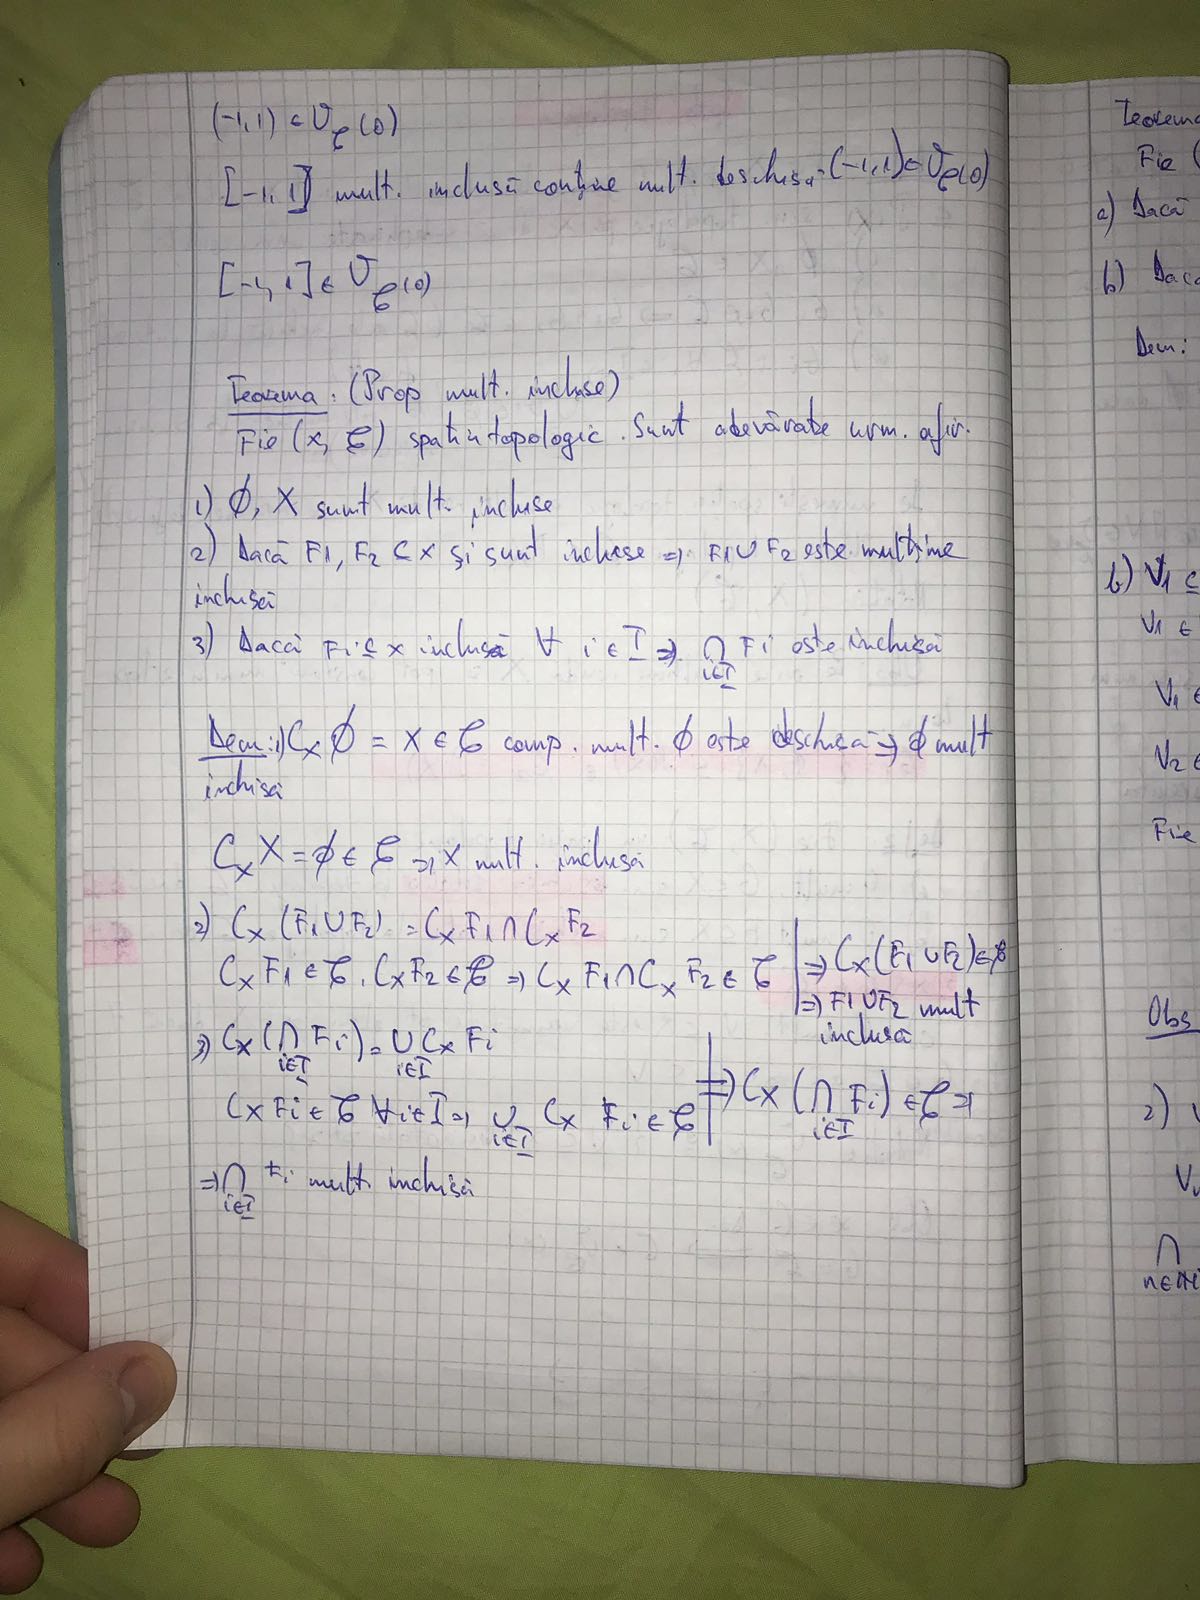 (-1,1) ∈ V_𝒞(0)
[-1,1] mult. inclusă conține mult. deschisă (-1,1) ∈ V_𝒞(0)
[-1,1] ∈ V_𝒞(0)
Teorema: (Prop mult. incluse)
Fie (x, 𝒞) spatiu topologic. Sunt adevărate urm. afir.
1) ∅, X sunt mult. incluse
2) Dacă F1, F2 ⊆ X și sunt incluse ⇒ F1 ∪ F2 este mulțime
inclusă
3) Dacă Fi ⊆ x inclusă ∀ i ∈ I ⇒ ⋂_{i∈I} Fi este închisă
Dem: 1) C_X ∅ = X ∈ 𝒞 comp. mult. ∅ este deschisă ⇒ ∅ mult
închisă
C_X X = ∅ ∈ 𝒞 ⇒ X mult. inclusă
2) C_X (F1 ∪ F2) = C_X F1 ∩ C_X F2
C_X F1 ∈ 𝒞, C_X F2 ∈ 𝒞 ⇒ C_X F1 ∩ C_X F2 ∈ 𝒞 | ⇒ C_X (F1 ∪ F2) ∈ 𝒞
⇒ F1 ∪ F2 mult
inclusă
3) C_X (⋂_{i∈I} Fi) = ⋃_{i∈I} C_X Fi
C_X Fi ∈ 𝒞 ∀ i ∈ I ⇒ ⋃_{i∈I} C_X Fi ∈ 𝒞 | ⇒ C_X (⋂_{i∈I} Fi) ∈ 𝒞 ⇒
⇒ ⋂_{i∈I} Fi mult. inclusă
Teorema
Fie (
a) Dacă
b) Dacă
Dem:
b) V1 ⊆
V1 ∈
V1 ∈
V2 ∈
Fie
Obs
2)
⋂